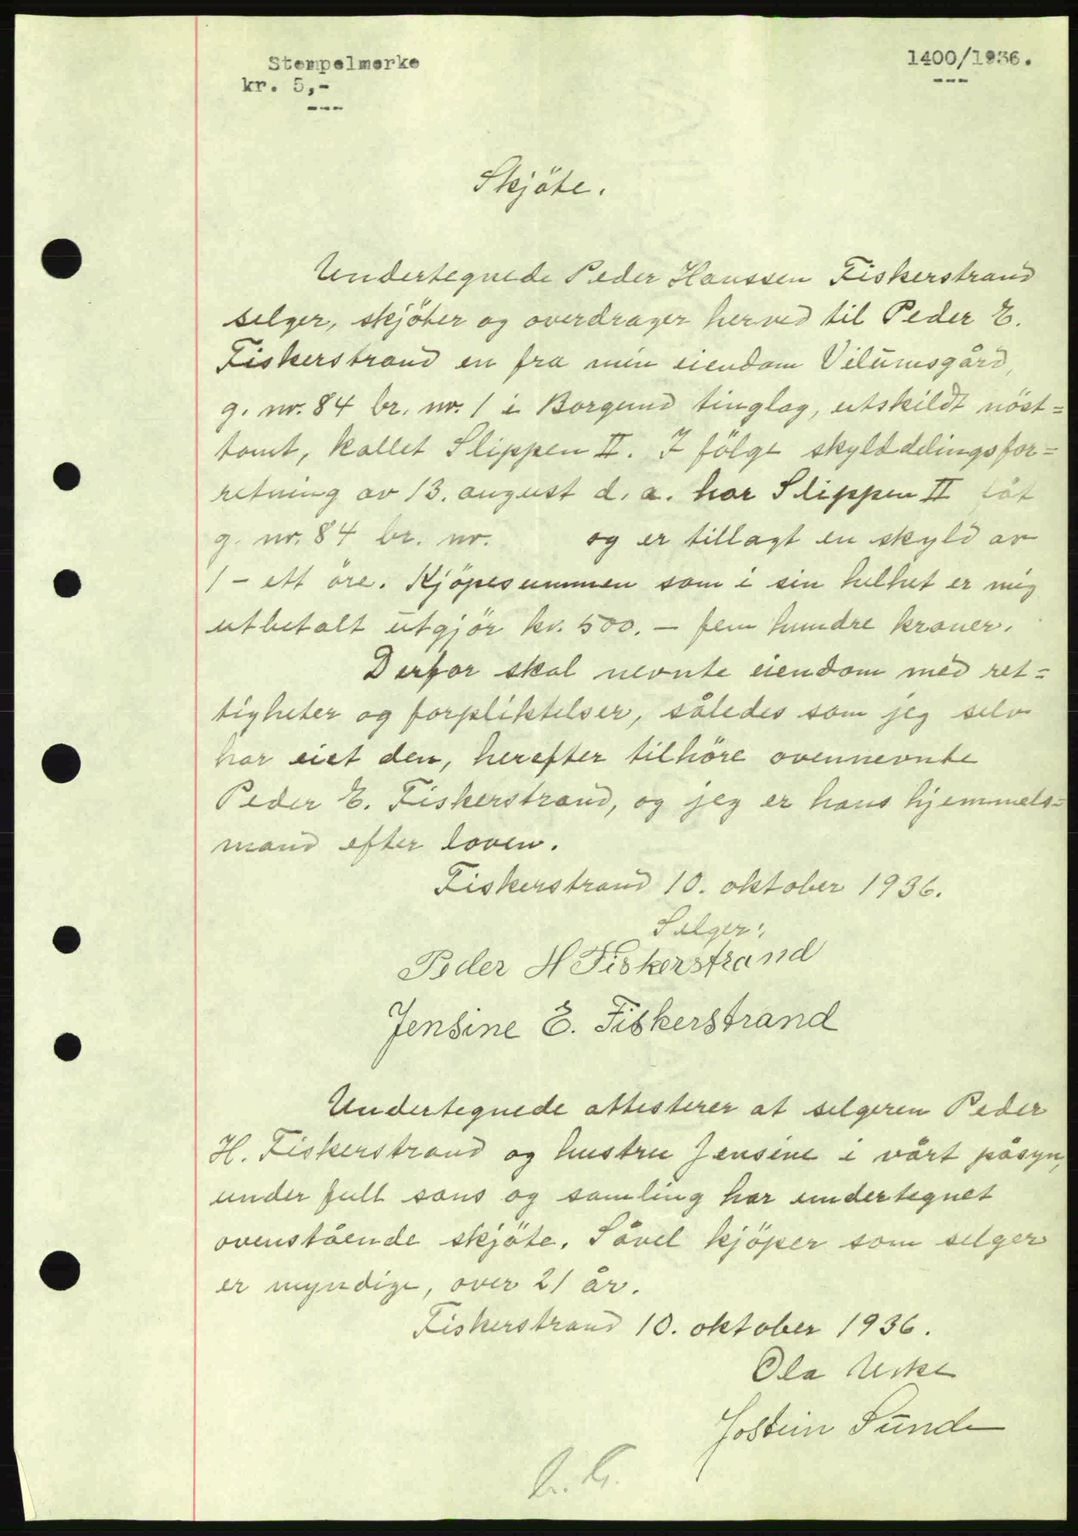 Stempelmerke
kr. 5,-
---
1400/1936.
---
Skjöte.
Undertegnede Peder Hanssen Fiskerstrand
selger, skjöter og overdrager herved til Peder E.
Fiskerstrand en fra min eiendom Vilumsgård,
g. nr. 84 br. nr. 1 i Borgund tinglag, utskildt nöst=
tomt, kallet Slippen II. I fölge skylddelingsfor=
retning av 13. august d. a. har Slippen II fåt
g. nr. 84 br. nr.      og er tillagt en skyld av
1 - ett öre. Kjöpesummen som i sin helhet er mig
utbetalt utgjör kr. 500. - fem hundre kroner.
Derfor skal nevnte eiendom med ret=
tigheter og forpliktelser, således som jeg selv
har eiet den, herefter tilhöre ovennevnte
Peder E. Fiskerstrand, og jeg er hans hjemmels=
mand efter loven.
Fiskerstrand 10. oktober 1936.
Selger:
Peder H Fiskerstrand
Jensine E. Fiskerstrand
Undertegnede attesterer at selgeren Peder
H. Fiskerstrand og hustru Jensine i vårt påsyn,
under full sans og samling har undertegnet
ovenstående skjöte. Såvel kjöper som selger
er myndige, over 21 år.
Fiskerstrand 10. oktober 1936.
Ola
Jostein Sunde